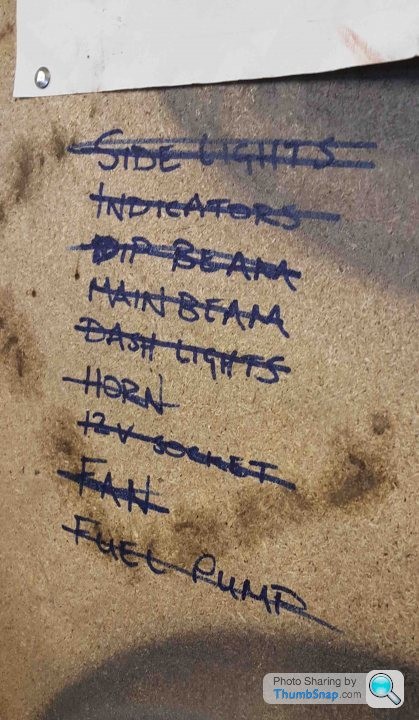 SIDE LIGHTS
INDICATORS
DIP BEAM
MAIN BEAM
DASH LIGHTS
HORN
12V SOCKET
FAN
FUEL PUMP
Photo Sharing by
ThumbSnap.com